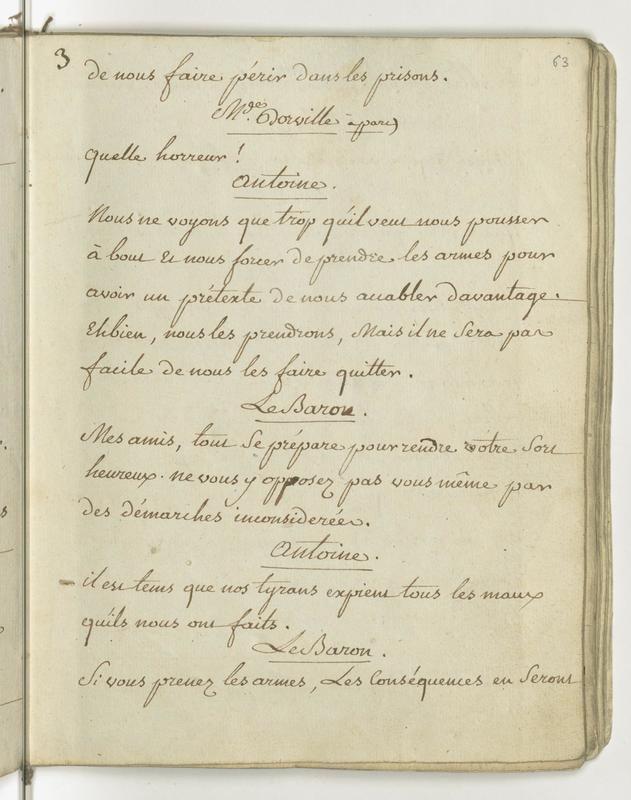 3
63
de nous faire périr dans les prisons.
Mde. Dorville à part)
quelle horreur !
Antoine.
Nous ne voyons que trop qu'il veut nous pousser
à bout Et nous forcer de prendre les armes pour
avoir un prétexte de nous accabler davantage.
Ehbien, nous les prendrons, Mais il ne Sera pas
facile de nous les faire quitter.
Le Baron.
Mes amis, tout Se prépare pour rendre votre Sort
heureux. ne vous y opposez pas vous même par
des démarches inconsidérées.
Antoine.
il est tems que nos tyrans expient tous les maux
qu'ils nous ont faits.
Le Baron.
Si vous prenez les armes, Les Conséquences en Seront